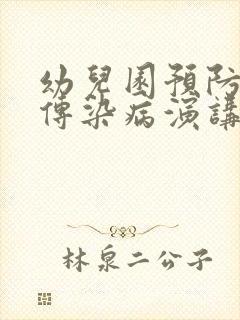 幼兒園預防
傳染病演講
林泉二公子